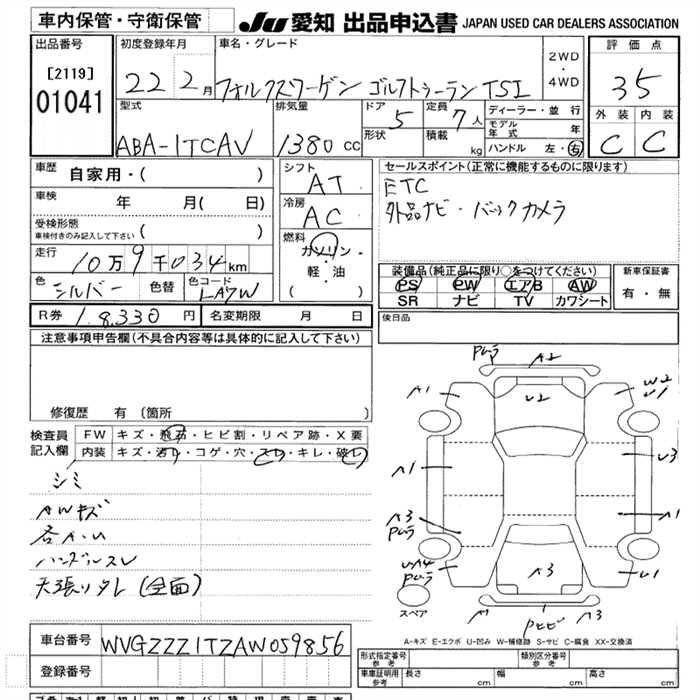 車内保管・守衛保管
JU 愛知 出品申込書 JAPAN USED CAR DEALERS ASSOCIATION
出品番号
[2119]
01041
初度登録年月
22 2月
車名・グレード
フォルクスワーゲン ゴルフトゥーラン TSI
2WD
・
4WD
評価点
35
型式
ABA-1TCAV
排気量
1380 cc
ドア 5
形状
定員 7人
積載 kg
ディーラー・並行
モデル年式 年
ハンドル 左・右
外装 内装
C C
車歴 自家用・( )
車検 年 月( 日)
受検形態
車検付きのみ記入して下さい ( )
走行 10万9千034km
色 シルバー 色替 色コード LA7W
シフト
AT
冷房
AC
燃料
ガソリン・
軽・油
( )
セールスポイント(正常に機能するものに限ります)
ETC
外品ナビ・バックカメラ
装備品(純正品に限り○をつけてください)
PS PW エアB AW
SR ナビ TV カワシート
新車保証書
有・無
R券 18,330円 名変期限 月 日
後日品
注意事項申告欄(不具合内容等は具体的に記入して下さい)
修復歴 有 (箇所
検査員
記入欄
FW キズ・飛石・ヒビ割・リペア跡・X要
内装 キズ・汚れ・コゲ・穴・スレ・キレ・破れ
シミ
AWキズ
各A・U
ハンドルスレ
天張りタレ(全面)
A2
A1
U2
W2
U1
A1
U3
A3
A1
A3
U1
スペア
A-キズ E-エクボ U-凹み W-補修跡 S-サビ C-腐食 XX-交換済
車台番号 WVGZZZ1TZAW059856
登録番号
形式指定番号
参考
類別区分番号
参考
車庫証明用
参考
長さ cm 幅 cm 高さ cm